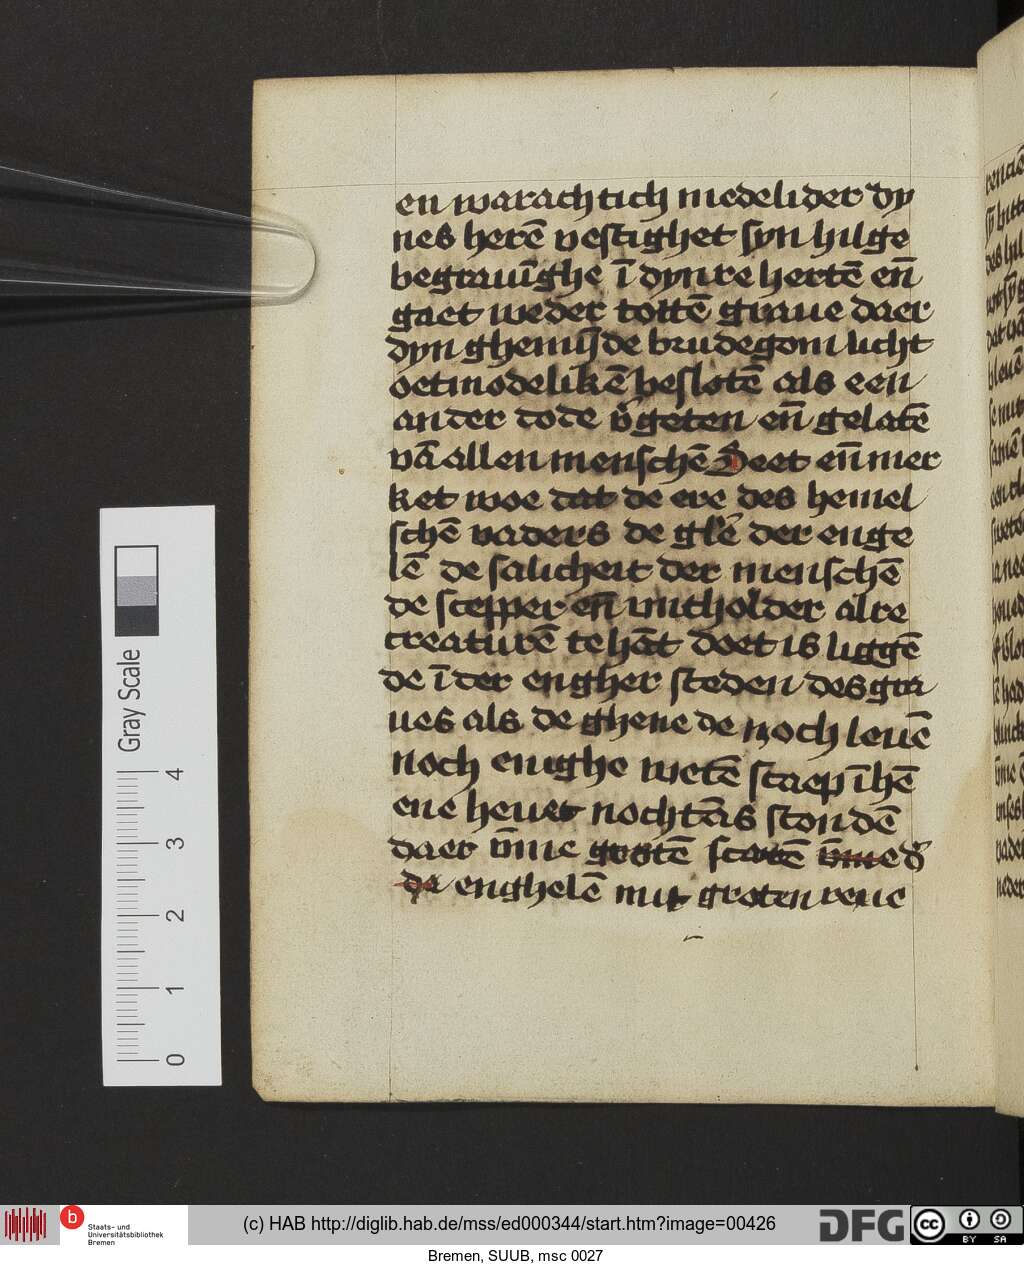 en warachtich medelider dy
nes herē vestighet syn hilge
begrauīghe ī dynre hertē en̄
gaet weder tottē graue daer
dyn ghemȳde brudegom licht
oetmodelikē beslotē als een
ander dode v̄geten en̄ gelatē
vā allen menschē Seet en̄ mer
ket woe dat de ere des hemel
schē vaders de gl'ē der enge
lē de salicheit der menschē
de scepper en̄ untholder alre
creaturē te hāt doet is liggē
de ī der engher steden des gra
ues als de ghene de noch leuē
noch enighe wetēscaep ī hē
ene heuet nochtās stondē
daer ūme grotē scarē ūme d'
da enghelē mit groten reue
Gray Scale
0 1 2 3 4
Staats- und
Universitätsbibliothek
Bremen
(c) HAB http://diglib.hab.de/mss/ed000344/start.htm?image=00426
DFG
cc BY SA
Bremen, SUUB, msc 0027